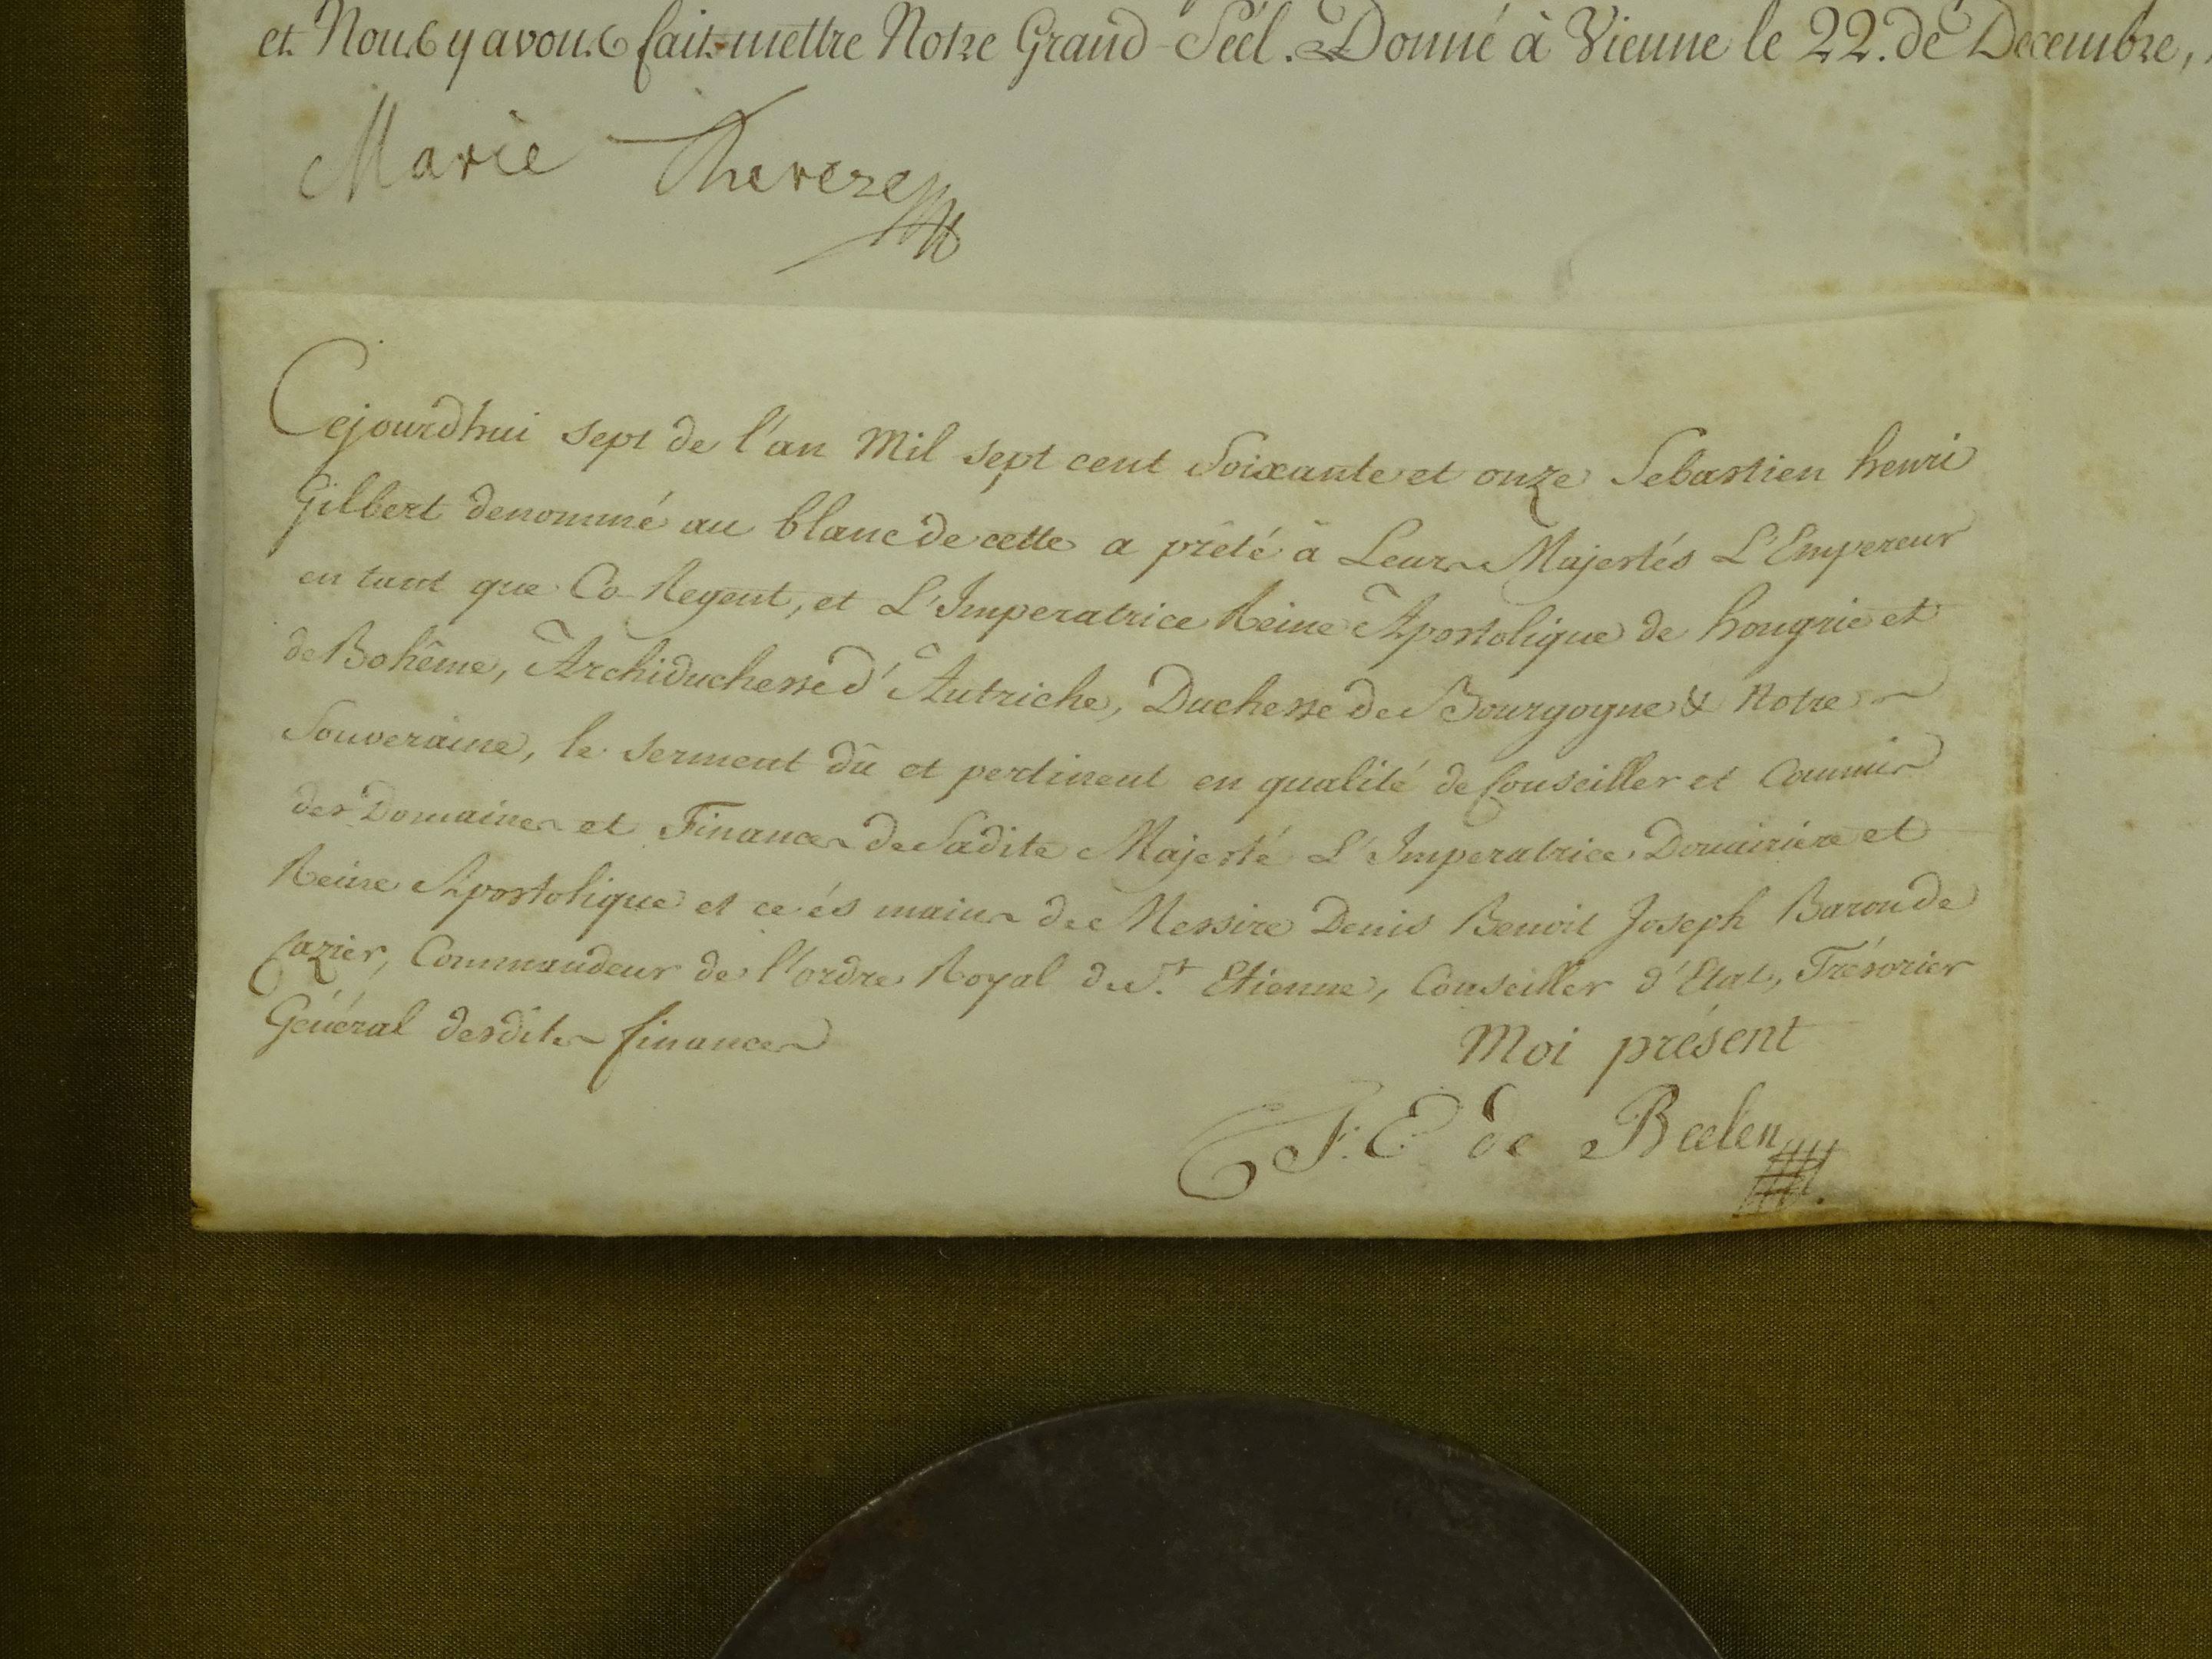 et Nous y avons fait mettre Notre Grand Séél. Donné à Vienne le 22. de Decembre,
Marie Therese
Cejourdhui sept de l'an Mil sept cent Soixante et onze Sebastien henri
Gilbert denommé au blanc de cette a prêté à Leurs Majestés L'Empereur
en tant que Co-Regent, et L'Imperatrice Reine Apostolique de hongrie et
de Bohême, Archiduchesse d'Autriche, Duchesse de Bourgogne & Notre
Souveraine, le serment dû et pertinent en qualité de Conseiller et Commis
des Domaines et Finances de Sadite Majesté L'Imperatrice Douairiére et
Reine Apostolique et ce és mains de Messire Denis Benoit Joseph Baron de
Cazier, Commandeur de l'ordre Royal de St. Etienne, Conseiller d'Etat, Trésorier
Géuéral desdites finances
Moi présent
F: E de Beelen